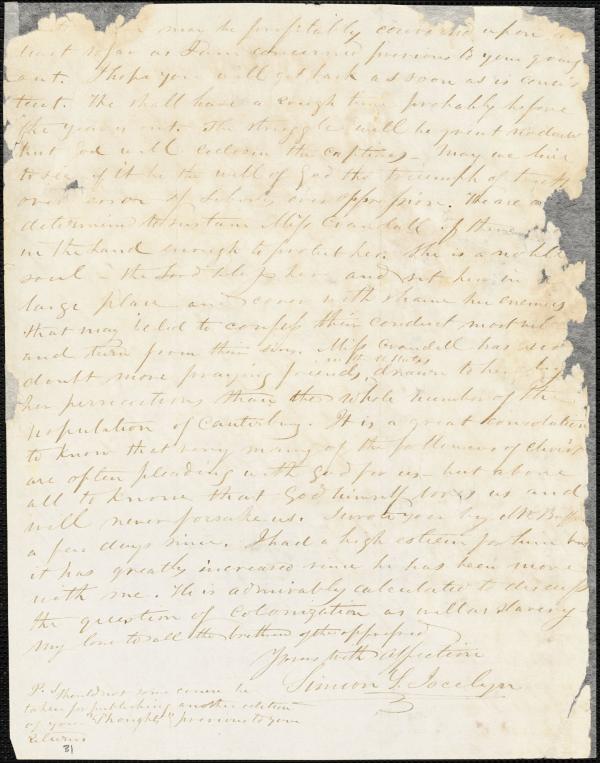 may be profitably conversed upon a
least so far as I am concerned previous to your going
out. I hope you will get back as soon as is consis
tent. We shall have a rough time probably before
the year is out. The struggle will be great no doubt
but God will redeem the captives - May we live
to see if it be the will of God the triumph of truth
over error of Liberty over oppression. We are
determined to sustain Miss Crandall if there
in the land enough to protect her. She is a noble
soul - the Lord help her and set her in
large place and cover with shame her enemies
that may be led to confess their conduct most
and turn from their sins. Miss Crandall has no
in the states
doubt more praying friends drawn to her by
her persecutions than the whole number of the
population of Canterbury. It is a great consolation
to know that very many of the followers of Christ
are often pleading with God for us - but above
all to know that God himself loves us and
will never forsake us. I wrote you by Mr.
a few days since. I had a high esteem for him but
it has greatly increased since he has been more
with me. He is admirably calculated to discuss
the question of Colonization as well as slavery -
My love to all the brethren of the oppressed
Yours with affection
Simeon S. Jocelyn
P.S. Should not some course be
taken for publishing another edition
of your "Thoughts" previous to your
returns